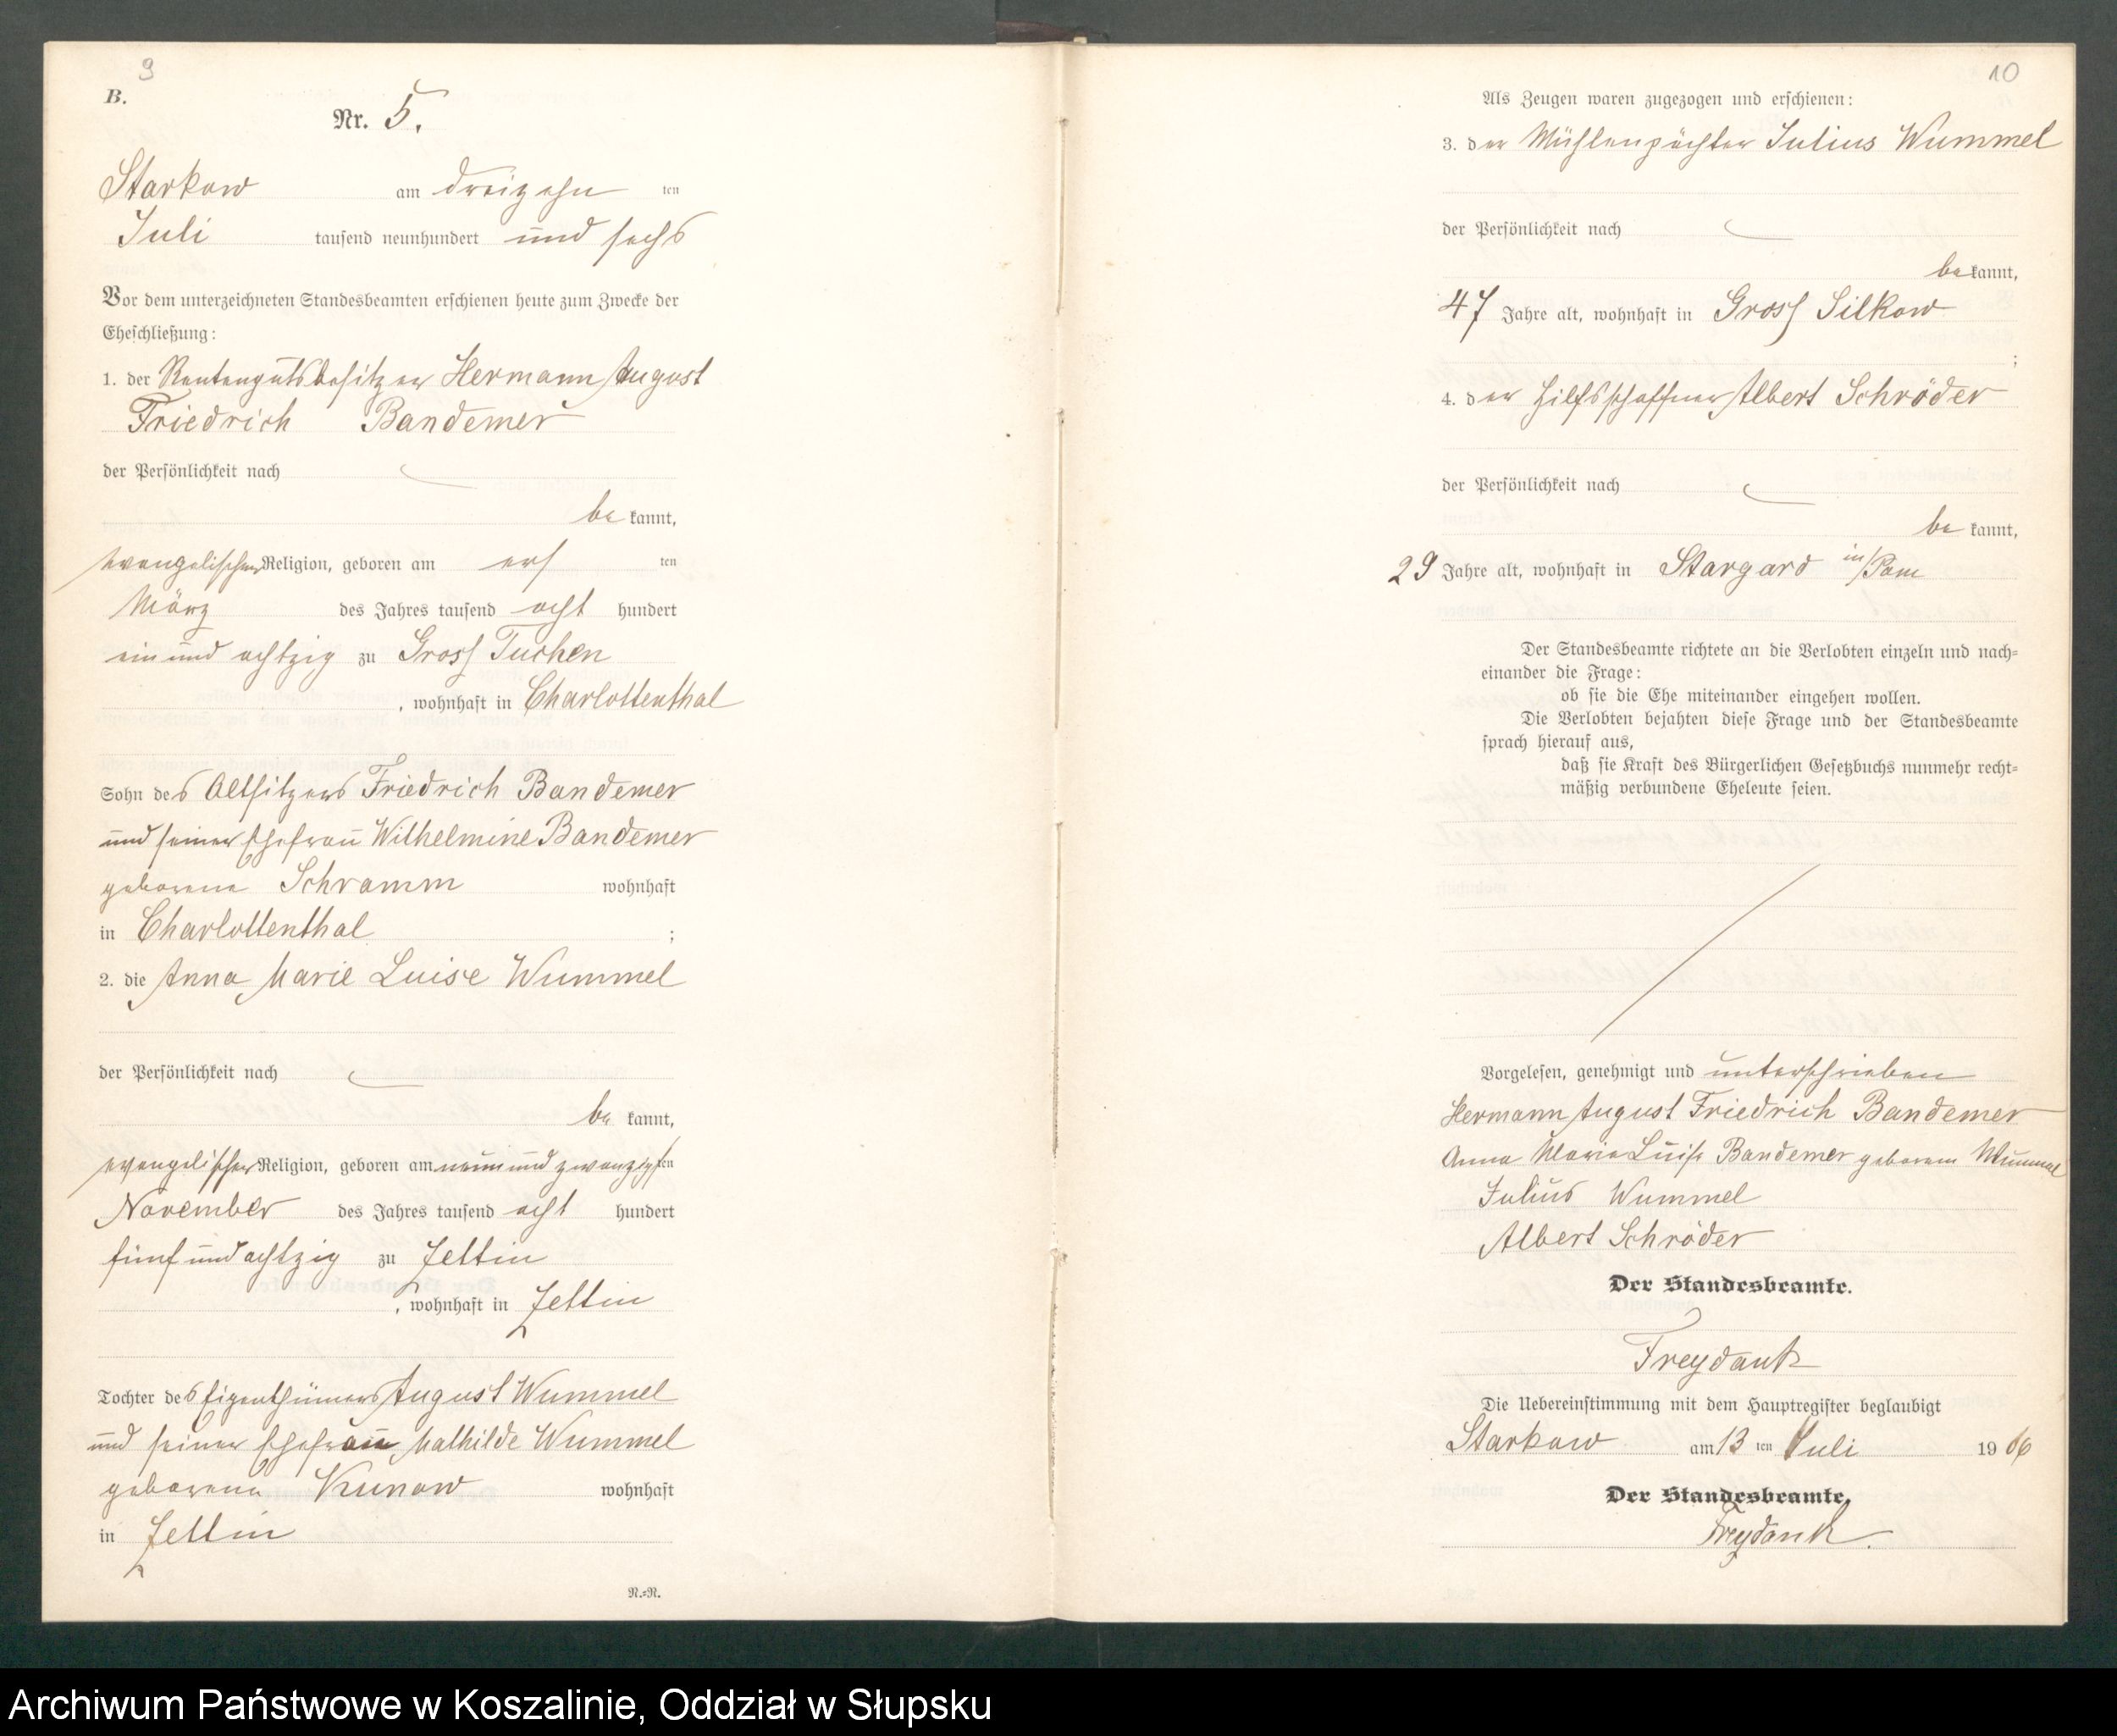 9
B.
Nr. 5.
Starkow am dreizehn ten
Juli tausend neunhundert und sechs
Vor dem unterzeichneten Standesbeamten erschienen heute zum Zwecke der
Eheschließung:
1. der Rentengutsbesitzer Hermann August
Friedrich Bandemer
der Persönlichkeit nach
be kannt,
evangelischer Religion, geboren am ers ten
März des Jahres tausend acht hundert
ein und achtzig zu Gross Tuchen
, wohnhaft in Charlottenthal
Sohn des Altsitzers Friedrich Bandemer
und seiner Ehefrau Wilhelmine Bandemer
geborene Schramm wohnhaft
in Charlottenthal ;
2. die Anna Marie Luise Wummel
der Persönlichkeit nach
be kannt,
evangelischer Religion, geboren am neun und zwanzigsten
November des Jahres tausend acht hundert
fünf und achtzig zu Zettin
, wohnhaft in Zettin
Tochter des Eigenthümers August Wummel
und seiner Ehefrau Mathilde Wummel
geborene Kunow wohnhaft
in Zettin
N.=N.
10
Als Zeugen waren zugezogen und erschienen:
3. der Mühlenpächter Julius Wummel
der Persönlichkeit nach
be kannt,
47 Jahre alt, wohnhaft in Gross Silkow
;
4. der Hilfsschaffner Albert Schröder
der Persönlichkeit nach
be kannt,
29 Jahre alt, wohnhaft in Stargard in/Pom
Der Standesbeamte richtete an die Verlobten einzeln und nach=
einander die Frage:
ob sie die Ehe miteinander eingehen wollen.
Die Verlobten bejahten diese Frage und der Standesbeamte
sprach hierauf aus,
daß sie Kraft des Bürgerlichen Gesetzbuchs nunmehr recht=
mäßig verbundene Eheleute seien.
Vorgelesen, genehmigt und unterschrieben
Hermann August Friedrich Bandemer
Anna Marie Luise Bandemer geborene Wummel
Julius Wummel
Albert Schröder
Der Standesbeamte.
Freydank
Die Uebereinstimmung mit dem Hauptregister beglaubigt
Starkow am 13 ten Juli 19 06
Der Standesbeamte.
Freydank.
Archiwum Państwowe w Koszalinie, Oddział w Słupsku